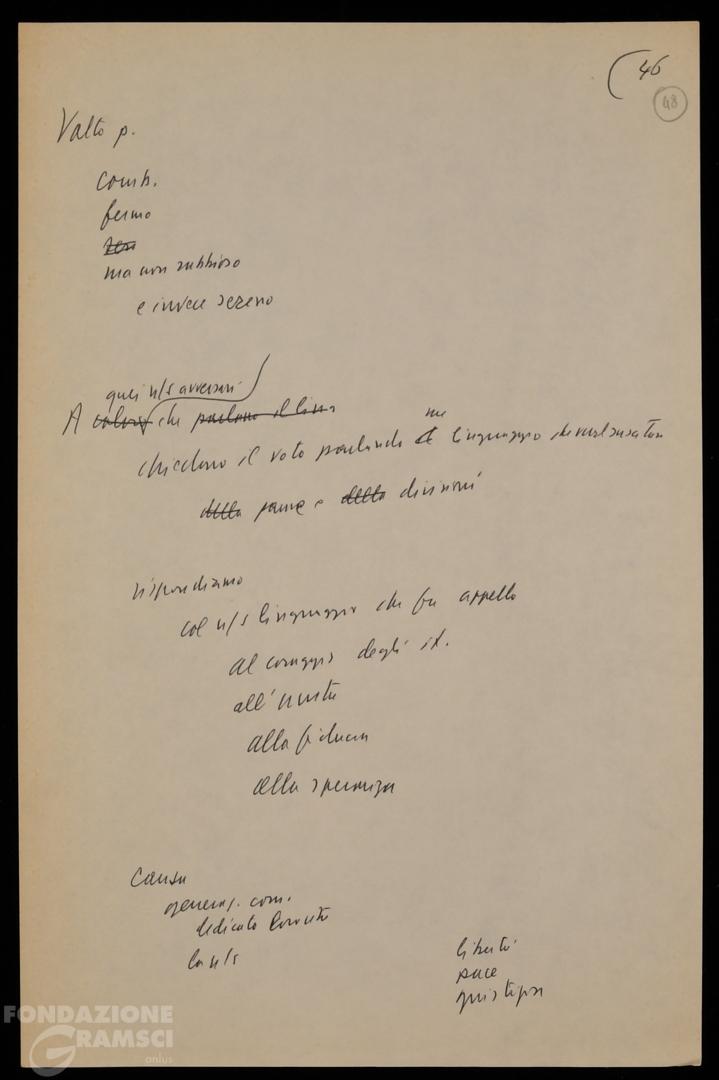 46
48
Volto p.
comb.
fermo
ma non rabbioso
e invece sereno
quei n/s avversari
A coloro che parlano il lin
chiedono il voto parlando un linguaggio
della paura e della divisioni
rispondiamo
col n/s linguaggio che fa appello
al coraggio degli it.
all'unità
alla fiducia
alla speranza
Causa
generaz. com.
dedicato
la n/s
libertà
pace
giustizia
FONDAZIONE
GRAMSCI
onlus